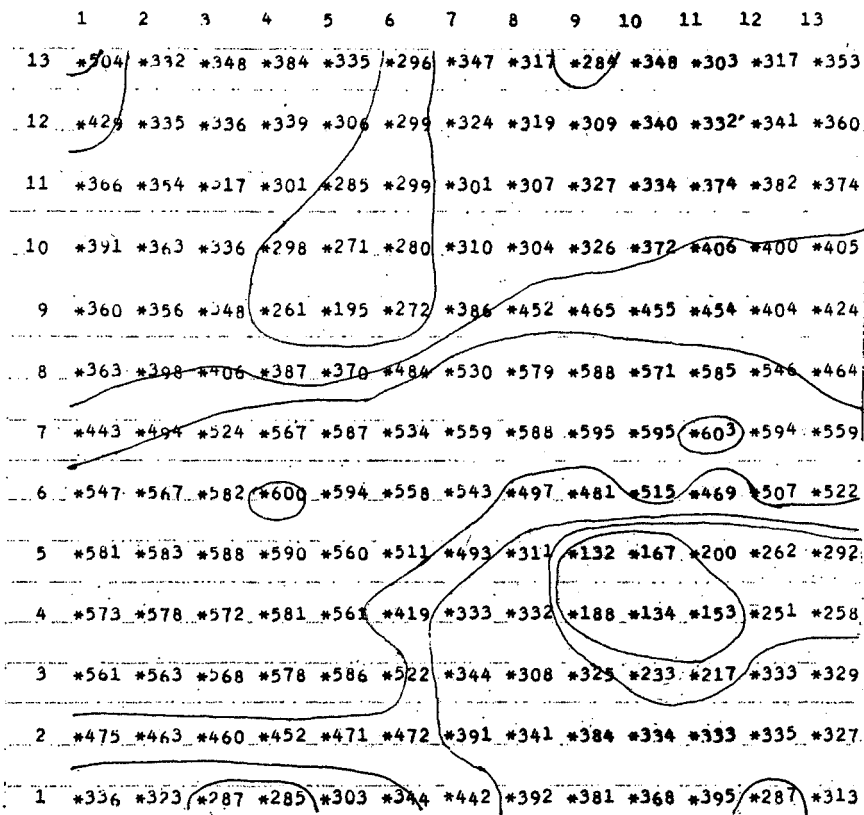 1 2 3 4 5 6 7 8 9 10 11 12 13
13 *504 *332 *348 *384 *335 *296 *347 *317 *284 *348 *303 *317 *353
12 *429 *335 *336 *339 *306 *299 *324 *319 *309 *340 *332 *341 *360
11 *366 *354 *317 *301 *285 *299 *301 *307 *327 *334 *374 *382 *374
10 *391 *363 *336 *298 *271 *280 *310 *304 *326 *372 *406 *400 *405
9 *360 *356 *348 *261 *195 *272 *386 *452 *465 *455 *454 *404 *424
8 *363 *398 *406 *387 *370 *484 *530 *579 *588 *571 *585 *546 *464
7 *443 *494 *524 *567 *587 *534 *559 *588 *595 *595 *603 *594 *559
6 *547 *567 *582 *600 *594 *558 *543 *497 *481 *515 *469 *507 *522
5 *581 *583 *588 *590 *560 *511 *493 *311 *132 *167 *200 *262 *292
4 *573 *578 *572 *581 *561 *419 *333 *332 *188 *134 *153 *251 *258
3 *561 *563 *568 *578 *586 *522 *344 *308 *325 *233 *217 *333 *329
2 *475 *463 *460 *452 *471 *472 *391 *341 *384 *334 *333 *335 *327
1 *336 *323 *287 *285 *303 *344 *442 *392 *381 *368 *395 *287 *313